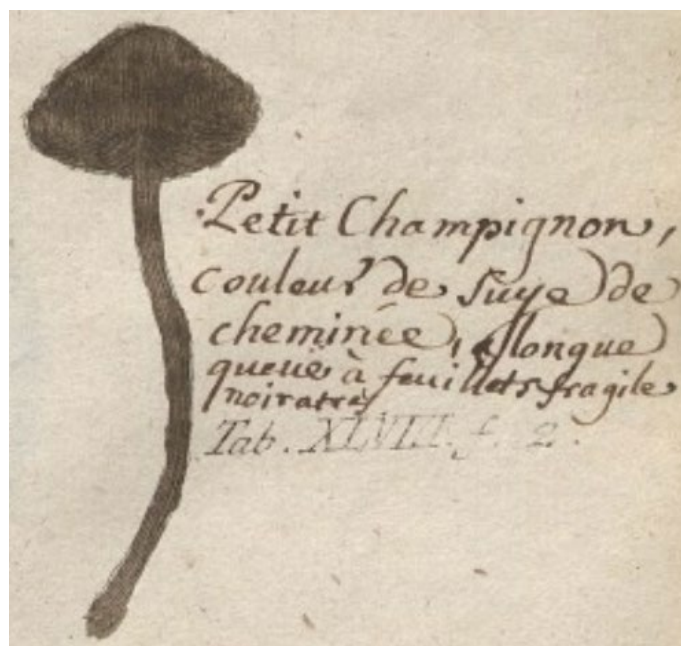 Petit Champignon,
couleur de Suye de
cheminée, longue
queue à feuillets fragile
noiratres
Tab. XLVIII. f. 2.